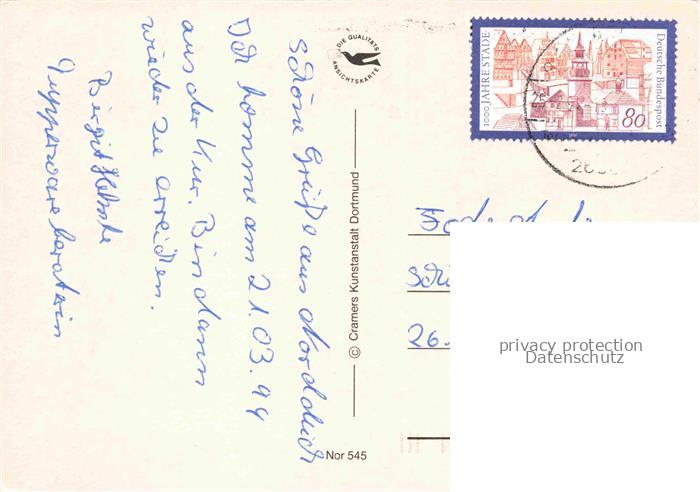 schöne Grüße aus Norddeich
Ich komme am 21.03.94
aus der Kur. Bin dann
wieder zu erreichen.
Birgit
Tupperwareberaterin
DIE QUALITÄTS
ANSICHTSKARTE
© Cramers Kunstanstalt Dortmund
Nor 545
1000 JAHRE STADE
Deutsche Bundespost
80
26
privacy protection
Datenschutz